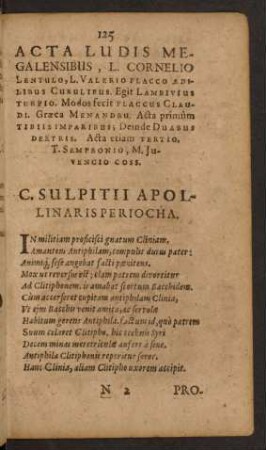 125
ACTA LUDIS ME-
GALENSIBUS, L. CORNELIO
LENTULO, L. VALERIO FLACCO ÆDI-
LIBUS CURULIBUS. Egit LAMBIVIUS
TURPIO. Modos fecit FLACCUS CLAU-
DI. Græca MENANDRU. Acta primùm
TIBIIS IMPARIBUS; Deinde DUABUS
DEXTRIS. Acta etiam TERTIO.
T. SEMPRONIO, M. JU-
VENCIO COSS.
C. SULPITII APOL-
LINARIS PERIOCHA.
IN militiam proficisci gnatum Cliniam,
Amantem Antiphilam, compulit durus pater:
Animíq; sese angebat facti pœnitens.
Mox ut reversus est; clam patrem divertitur
Ad Clitiphonem. is amabat scortum Bacchidem.
Cùm accerseret cupitam antiphilam Clinia,
Ut ejus Bacchis venit amica, ac servolæ
Habitum gerens Antiphila. factum id, quò patrem
Suum celaret Clitipho. hic technis Syri
Decem minas meretriculæ aufert à sene.
Antiphila Clitiphonis reperitur soror.
Hanc Clinia, aliam Clitipho uxorem accipit.
N 2 PRO-